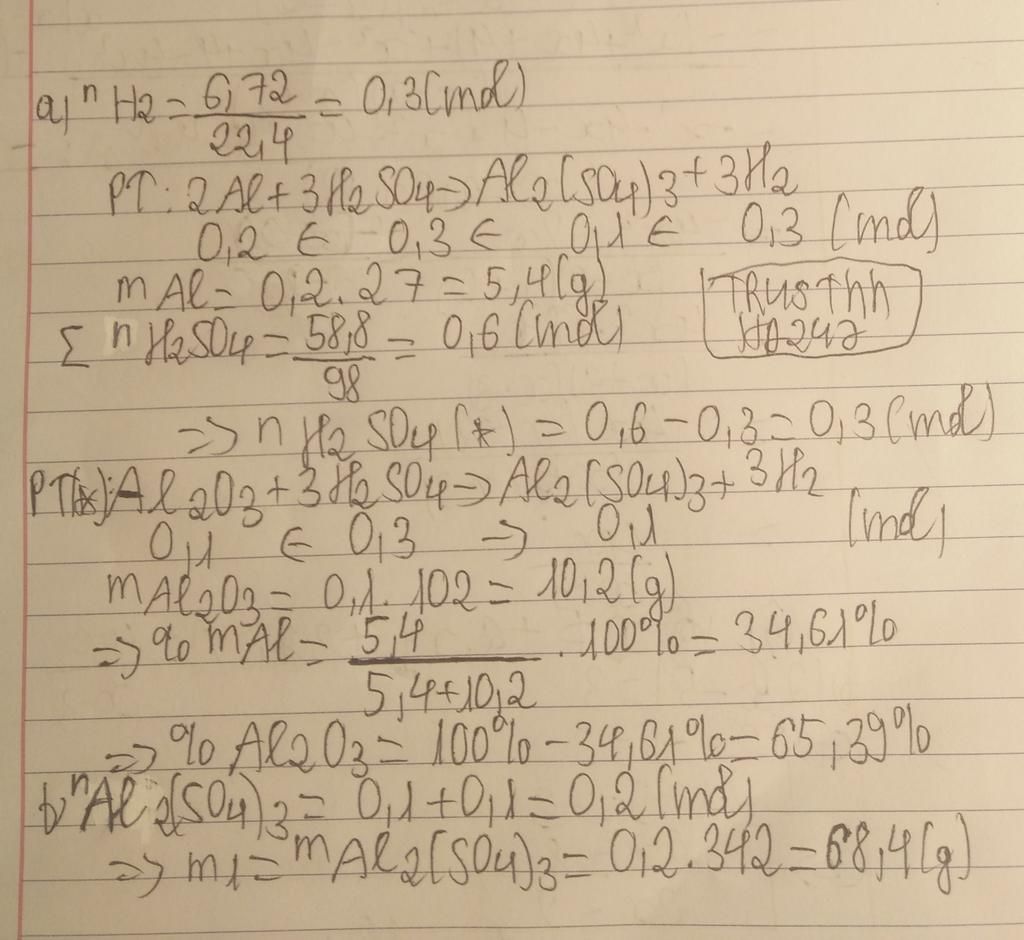 a, nH2 = 6,72/22,4 = 0,3(mol)
PT: 2Al + 3H2SO4 → Al2(SO4)3 + 3H2
0,2 ← 0,3 ← 0,1 ← 0,3 (mol)
mAl = 0,2.27 = 5,4(g)
TRUSThh
HD247
Σ nH2SO4 = 58,8/98 = 0,6(mol)
=> nH2SO4(*) = 0,6 - 0,3 = 0,3(mol)
PT(*): Al2O3 + 3H2SO4 → Al2(SO4)3 + 3H2
0,1 ← 0,3 → 0,1 (mol)
mAl2O3 = 0,1.102 = 10,2(g)
=> %mAl = 5,4/5,4+10,2 .100% = 34,61%
=> %Al2O3 = 100% - 34,61% = 65,39%
b, nAl2(SO4)3 = 0,1+0,1 = 0,2(mol)
=> m1 = mAl2(SO4)3 = 0,2.342 = 68,4(g)